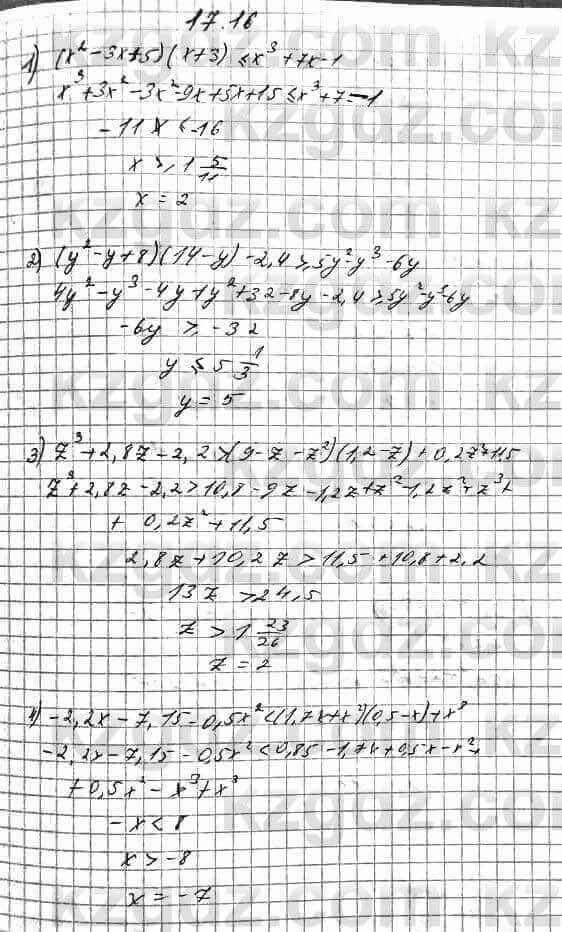 17.16
1) (x² - 3x + 5)(x + 3) ≤ x³ + 7x - 1
x³ + 3x² - 3x² - 9x + 5x + 15 ≤ x³ + 7 = -1
- 11x < -16
x > 1 5/11
x = 2
2) (y² - y + 8)(14 - y) - 2,4 ≥ 5y² - y³ - 6y
4y² - y³ - 4y + y² + 32 - 8y - 2,4 ≥ 5y² - y³ - 6y
- 6y ≥ - 32
y ≤ 5 1/3
y = 5
3) z³ + 2,8z - 2,2 > (9 - z - z²)(1,2 - z) + 0,2z² + 11,5
z³ + 2,8z - 2,2 > 10,8 - 9z - 1,2z + z² - 1,2z² + z³ +
+ 0,2z² + 11,5
2,8z + 10,2z > 11,5 + 10,8 + 2,2
13z > 24,5
z > 1 23/26
z = 2
4) - 2,2x - 7,15 - 0,5x² < (1,7x + x²)(0,5 - x) + x³
- 2,2x - 7,15 - 0,5x² < 0,85 - 1,7x + 0,5x - x² +
+ 0,5x² - x³ + x³
- x < 8
x > -8
x = - 7
kzgdz.com